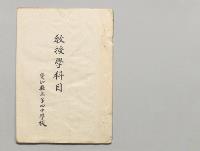 教授學科目
愛知縣立第四中學校